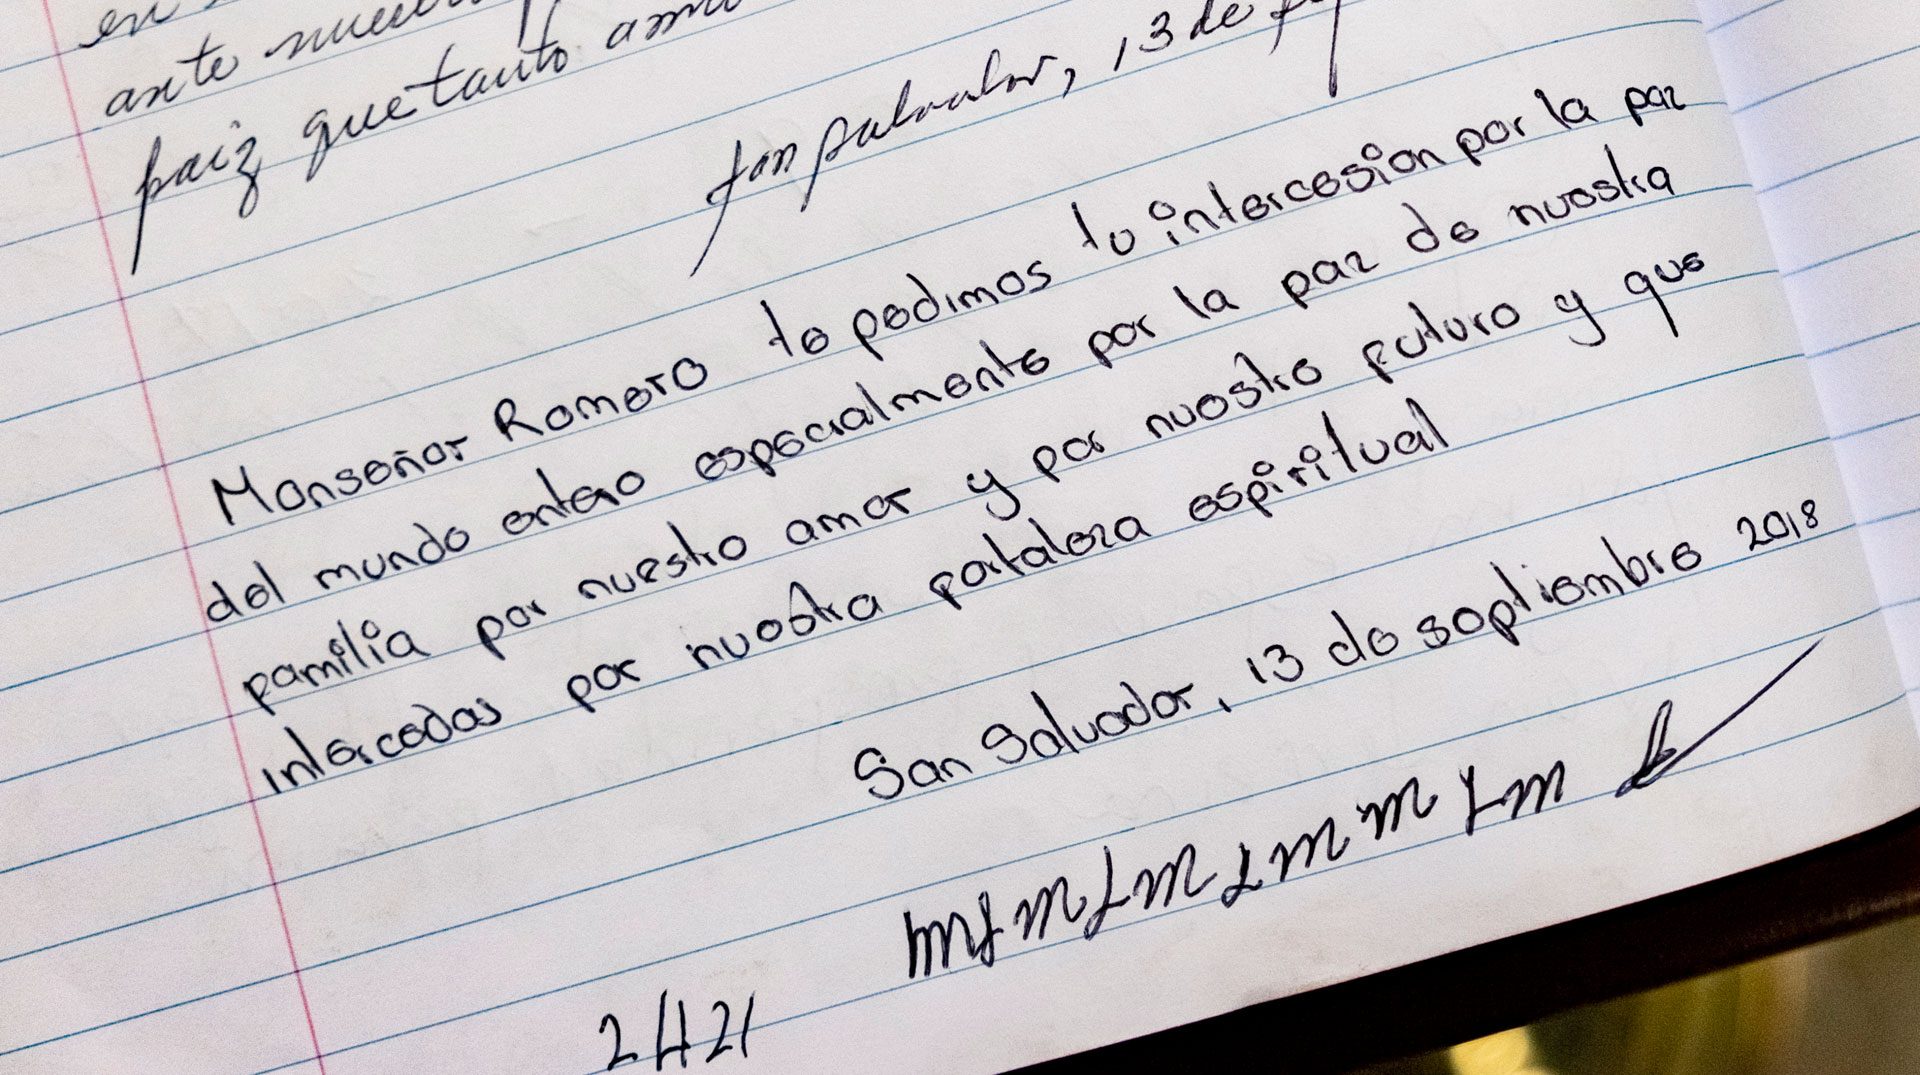 en
ante nuestro
paiz que tanto amo
San Salvador, 13 de
Monseñor Romero te pedimos tu intercesion por la paz
del mundo entero especialmente por la paz de nuestra
familia por nuestro amor y por nuestro futuro y que
intercedas por nuestra fortaleza espiritual
San Salvador, 13 de septiembre 2018